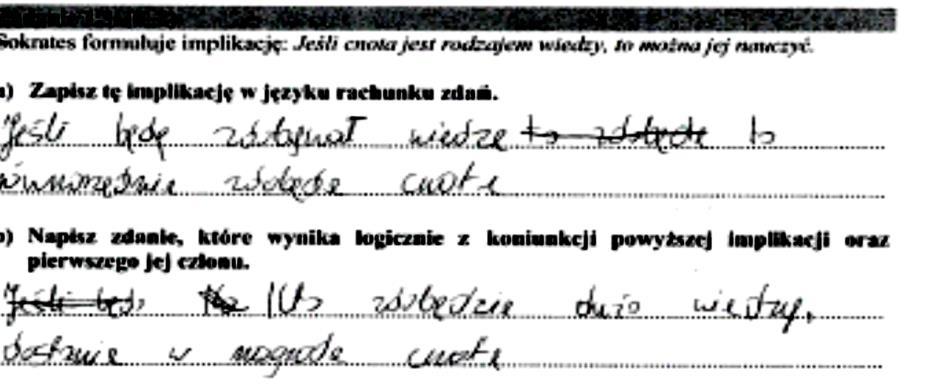 Sokrates formułuje implikację: Jeśli cnota jest rodzajem wiedzy, to można jej nauczyć.
a) Zapisz tę implikację w języku rachunku zdań.
Jeśli będę zdobywał wiedzę to zdobędę to
równorzędnie zdobędę cnotę
b) Napisz zdanie, które wynika logicznie z koniunkcji powyższej implikacji oraz
pierwszego jej członu.
Jeśli będę Kto zdobędzie dużo wiedzy,
dostanie w nagrodę cnotę